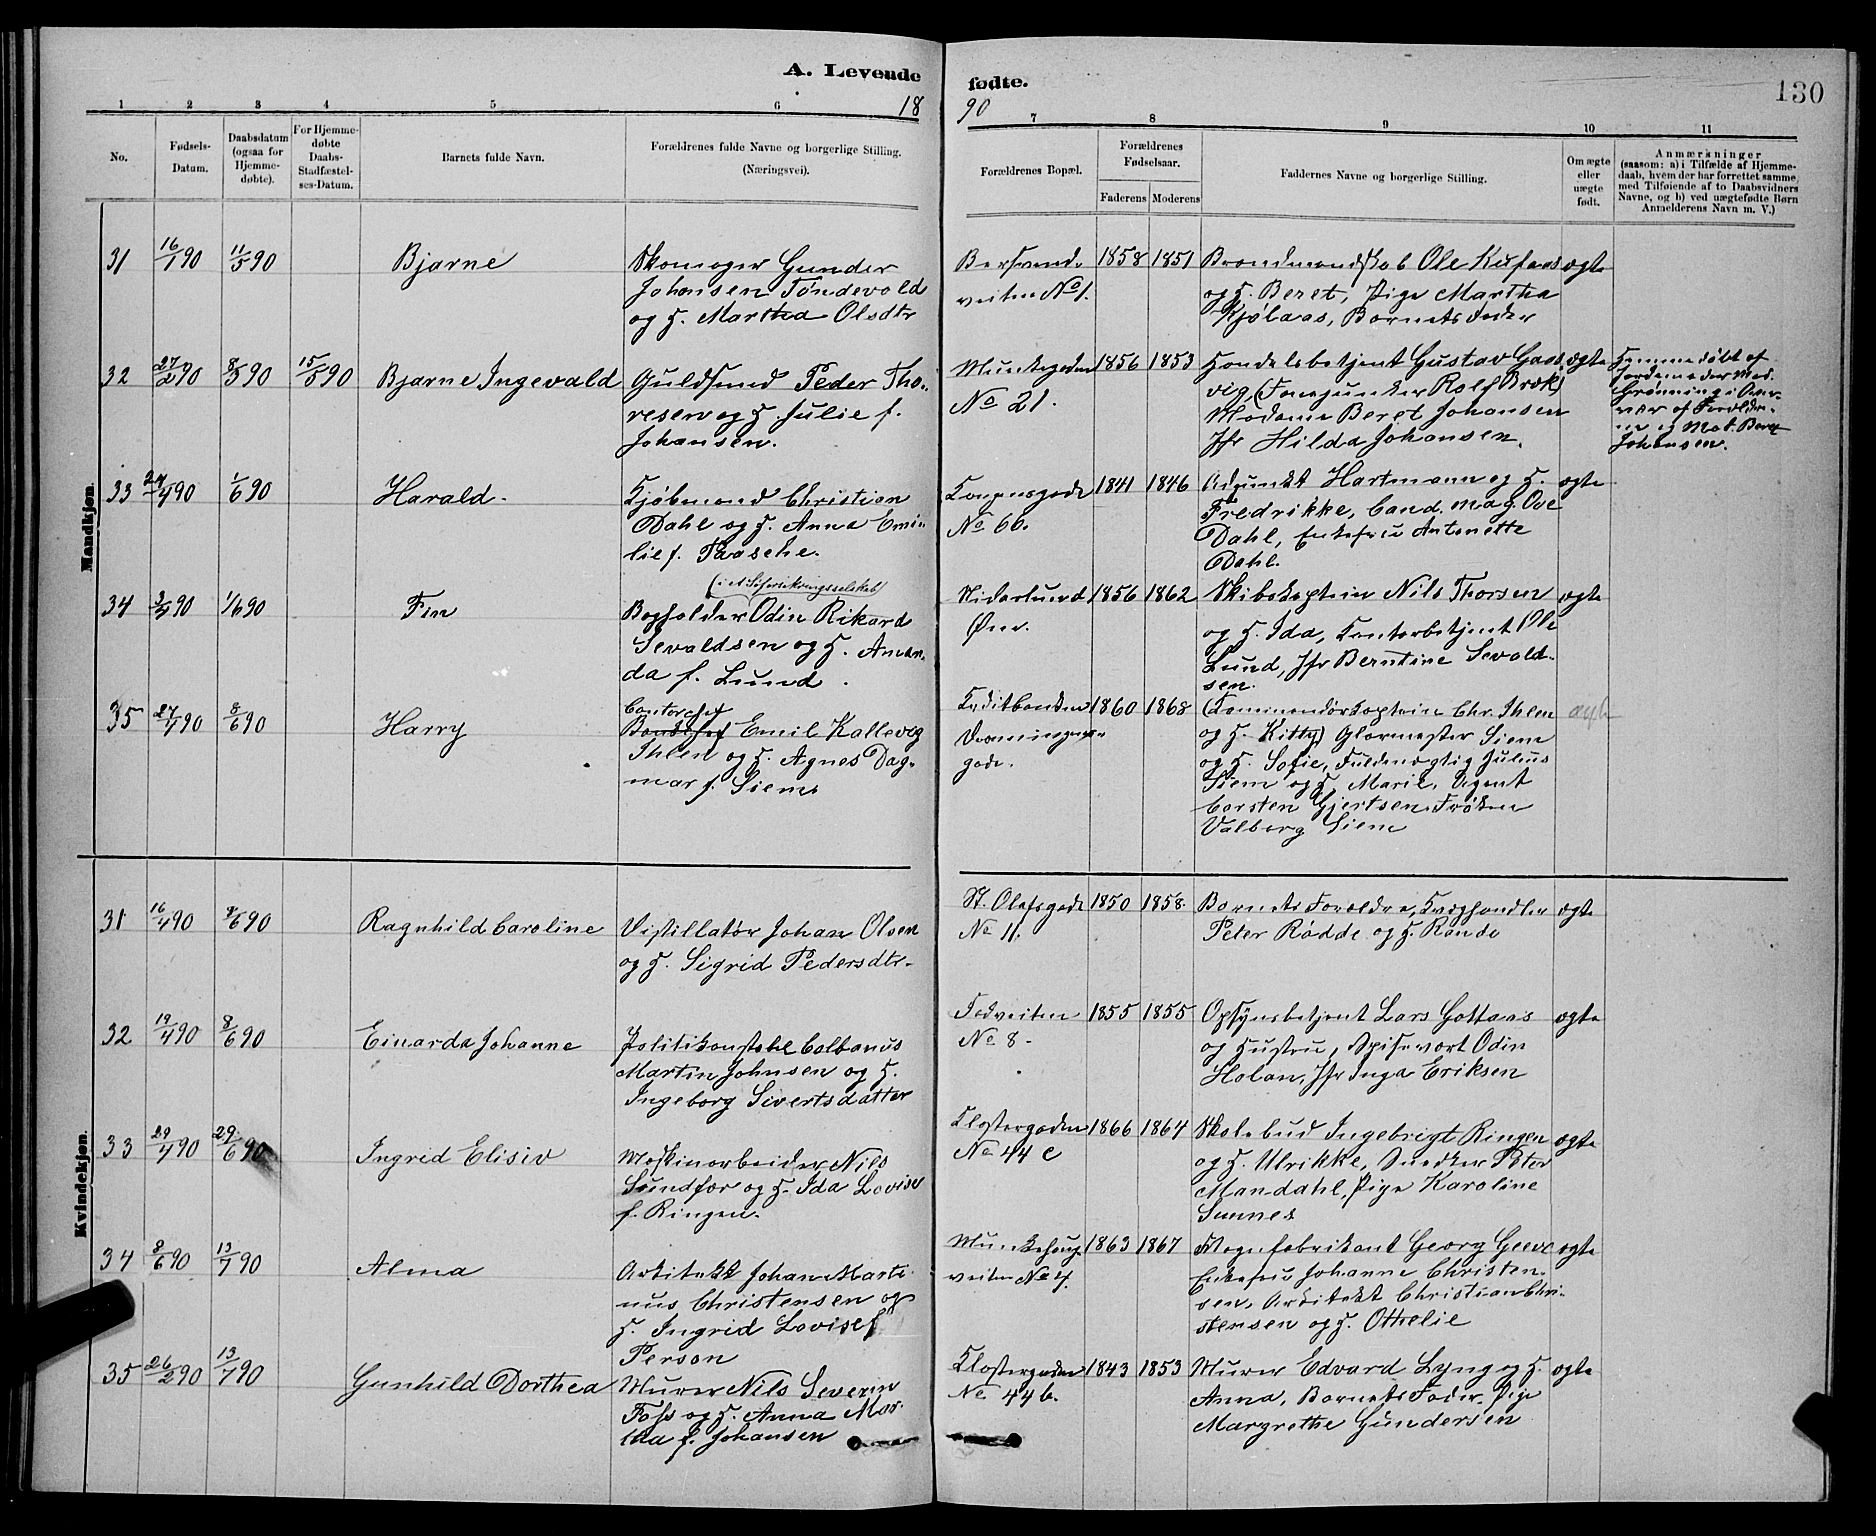 A. Levende
fødte.
130
18
90
1 2 3 4 5 6 7 8 9 10 11
No.
Fødsels-
Datum.
Daabsdatum
(ogsaa for
Hjemme-
døbte).
For Hjemme-
døbte
Daabs-
Stadfæstel-
ses-Datum.
Barnets fulde Navn.
Forældrenes fulde Navne og borgerlige Stilling.
(Næringsvei).
Forældrenes Bopæl.
Forældrenes
Fødselsaar.
Faderens Moderens
Faddernes Navne og borgerlige Stilling.
Om ægte
eller
uægte
født.
Anmærkninger
(saasom: a) i Tilfælde af Hjemme-
daab, hvem der har forrettet samme,
med Tilføiende af to Daabsvidners
Navne, og b) ved uægtefødte Børn
Anmelderens Navn m. V.)
Mandkjøn.
31 16/1 90 11/5 90 Bjarne
Skomager Gunder
Johansen Tøndevold
og H. Martha Olsdtr
veiten No 1.
1858 1851
Ole
og H. Beret, Pige Martha
Kjölaas, Barnets Fader
ægte
32 27/2 90 8/5 90 15/5 90 Bjarne Ingevald
Guldsmed Peder Tho-
resen og H. Julie f.
Johansen.
Munkegaden
No 21.
1856 1853
Handelsbetjent Gustav Gaas
vig, (Rolf Brok)
Madame Beret Johansen
Jfr Hilda Johansen.
ægte
Hjemmedøbt af
Jordemoder Mad.
Grønning i Over-
vær af Forældre-
ne og Mad. Beret
Johansen.
33 24/4 90 1/6 90 Harald.
Kjøbmand Christian
Dahl og H. Anna Emi-
lie f. Paasche.
Kongensgade
No 66.
1841 1846
Adjunkt Hartmann og H.
Fredrikke, Cand. mag. Ove
Dahl, Enkefru Antonette
Dahl.
ægte
34 3/4 90 1/6 90 Fin
(i et Søforsikringsselskab)
Bogholder Odin Rikard
Sevaldsen og H. Aman-
da f. Lund.
Nidarlund
Øen.
1856 1862
Skibskaptein Nils Thorsen
og H. Ida, Kontorbetjent Ole
Lund, Jfr Berntine Sevald-
sen.
ægte
35 27/4 90 8/6 90 Harry
Contorchef
Emil Kallevig
Ihlen og H. Agnes Dag-
mar f. Siem.
Kreditbanken
Dronningens-
gade.
1860 1868
(Kommandørkaptein Chr. Ihlen
og H. Kitty) Glarmester Siem
og H. Sofie, Fuldmægtig Julius
Siem og H. Marie, Agent
Carsten Gjertsen, Frøken
Valborg Siem
ægte
Kvindekjøn.
31 16/4 90 8/6 90 Ragnhild Caroline
Distillatør Johan Olsen
og H. Sigrid Pedersdtr.
St. Olafsgade
No 11.
1850 1858.
Barnets Forældre, Kreghandler
Peter Rødde og H. Randi
ægte
32 19/4 90 8/6 90 Einarda Johanne
Politikonstabel Colbanus
Martin Johnsen og H.
Ingeborg Sivertsdatter
Fodveiten
No 8.
1855 1855
Opsynsbetjent Lars Gottaas
og Hustru, Spisevært Odin
Holan, Jfr Inga Eriksen
ægte
33 29/4 90 29/6 90 Ingrid Elisiv
Maskinarbeider Nils
Sundfær og H. Ida Lovise
f. Ringen.
Klostergaden
No 44 c
1866 1864
Skolebud Ingebrigt Ringen
og H. Ulrikke, Snedker Peter
Mandahl, Pige Karoline
Sunnes
ægte
34 8/6 90 13/7 90 Alma
Arkitekt Johan Marti-
nus Christensen og
H. Ingrid Lovise f.
Person
Munkhaug-
veiten No 4.
1863 1867
Vognfabrikant Georg Geeve
Enkefru Johanne Christen-
sen, Arkitekt Christian Chri-
stensen og H. Othelie
ægte
35 26/2 90 13/7 90 Gunhild Dorthea
Murer Nils Severin
Foss og H. Anna Mar-
tha f. Johansen
Klostergaden
No 44 b.
1843 1853
Murer Edvard Lyng og H.
Anna, Barnets Fader, Pige
Margrethe Gundersen
ægte